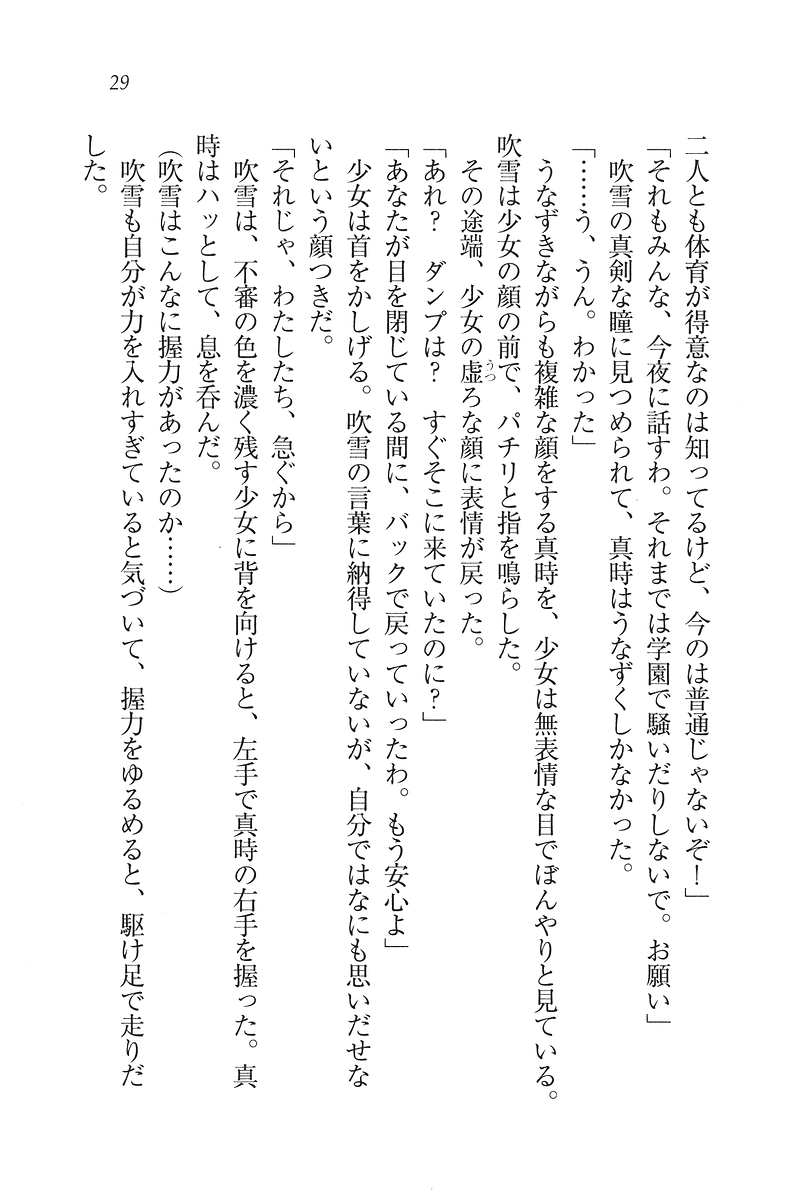 29
二人とも体育が得意なのは知ってるけど、今のは普通じゃないぞ！」
「それもみんな、今夜に話すわ。それまでは学園で騒いだりしないで。お願い」
　吹雪の真剣な瞳に見つめられて、真時はうなずくしかなかった。
「……う、うん。わかった」
　うなずきながらも複雑な顔をする真時を、少女は無表情な目でぼんやりと見ている。
吹雪は少女の顔の前で、パチリと指を鳴らした。
　その途端、少女の虚うつろな顔に表情が戻った。
「あれ？　ダンプは？　すぐそこに来ていたのに？」
「あなたが目を閉じている間に、バックで戻っていったわ。もう安心よ」
　少女は首をかしげる。吹雪の言葉に納得していないが、自分ではなにも思いだせな
いという顔つきだ。
「それじゃ、わたしたち、急ぐから」
　吹雪は、不審の色を濃く残す少女に背を向けると、左手で真時の右手を握った。真
時はハッとして、息を呑んだ。
（吹雪はこんなに握力があったのか……）
　吹雪も自分が力を入れすぎていると気づいて、握力をゆるめると、駆け足で走りだ
した。